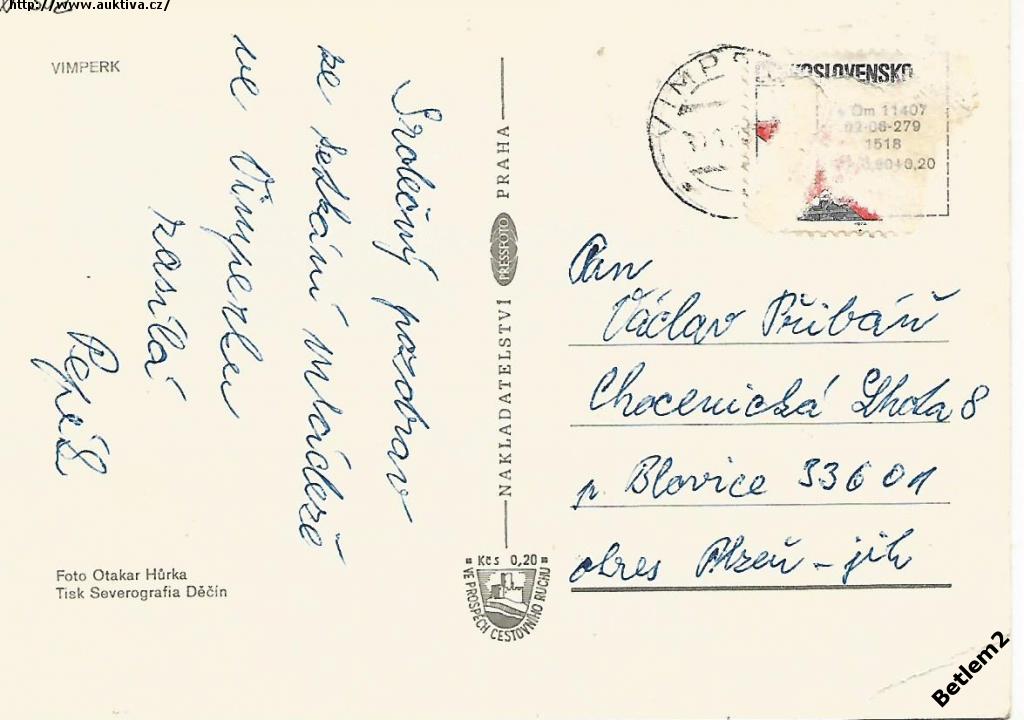 http://www.auktiva.cz/
VIMPERK
Srdečný pozdrav
ze setkání mládeže
ve Vimperku
zasílá
Pepíš
NAKLADATELSTVÍ PRESSFOTO PRAHA
Kčs 0,20
VE PROSPĚCH CESTOVNÍHO RUCHU
Foto Otakar Hůrka
Tisk Severografia Děčín
VIMP
KOSLOVENSKO
Om 11407
02-06-279
1518
0,20
Pan
Václav Přibáň
Chocenická Lhota 8
p. Blovice 336 01
okres Plzeň - jih
Betlem2